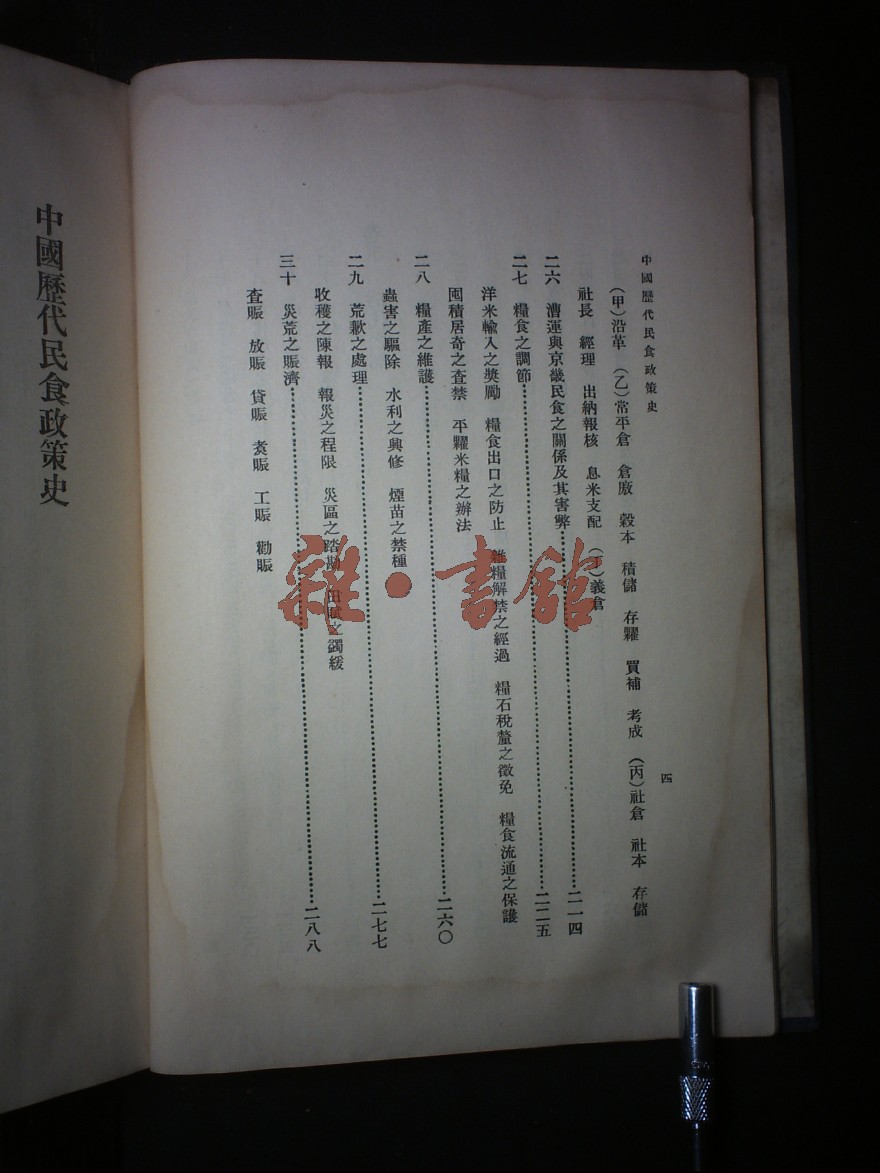 中國歷代民食政策史
四
(甲)沿革 (乙)常平倉 倉廒 穀本 積儲 存糶 買補 考成 (丙)社倉 社本 存儲
社長 經理 出納報核 息米支配 (丁)義倉
二六 漕運與京畿民食之關係及其害弊……二一四
二七 糧食之調節……二二五
洋米輸入之獎勵 糧食出口之防止 雜糧解禁之經過 糧石稅釐之徵免 糧食流通之保護
囤積居奇之查禁 平糶米糧之辦法
二八 糧產之維護……二六〇
蟲害之驅除 水利之興修 煙苗之禁種
二九 荒歉之處理……二七七
收穫之陳報 報災之程限 災區之踏勘 田賦之蠲緩
三十 災荒之賑濟……二八八
查賑 放賑 貸賑 煮賑 工賑 勸賑
中國歷代民食政策史
雜·書館